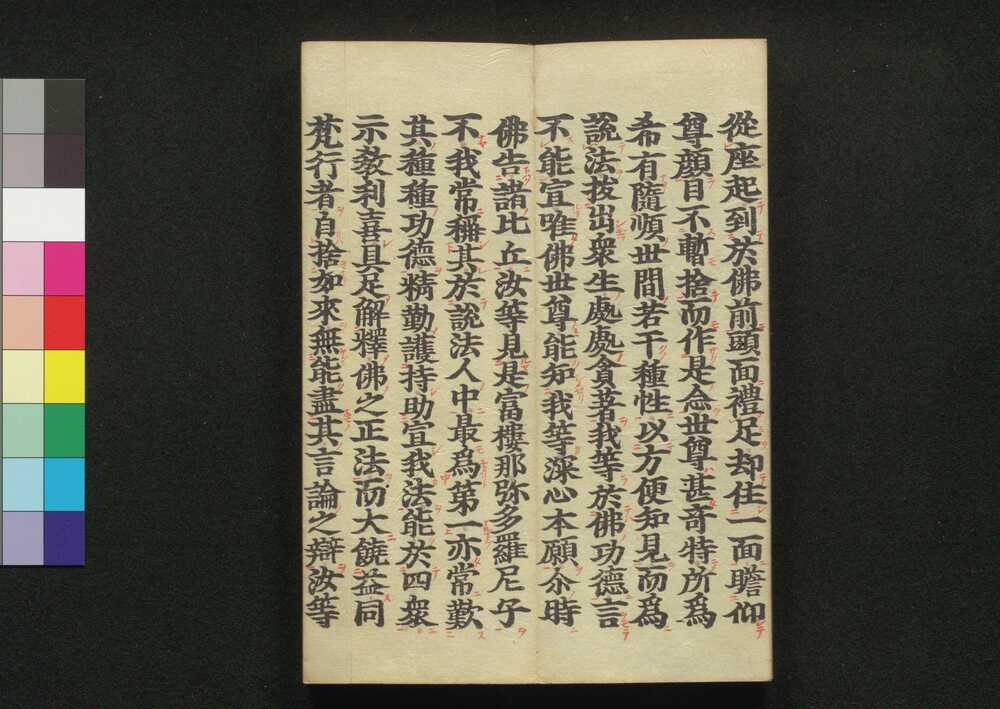 從座起到於佛前頭面禮足却住一面瞻仰
尊顏目不暫捨而作是念世尊甚奇特所為
希有隨順世間若干種性以方便知見而為
說法拔出衆生處處貪著我等於佛功德言
不能宣唯佛世尊能知我等深心本願尒時
佛告諸比丘汝等見是富樓那弥多羅尼子
不我常稱其於說法人中最為第一亦常歎
其種種功德精勤護持助宣我法能於四衆
示教利喜具足解釋佛之正法而大饒益同
梵行者自捨如來無能盡其言論之辯汝等